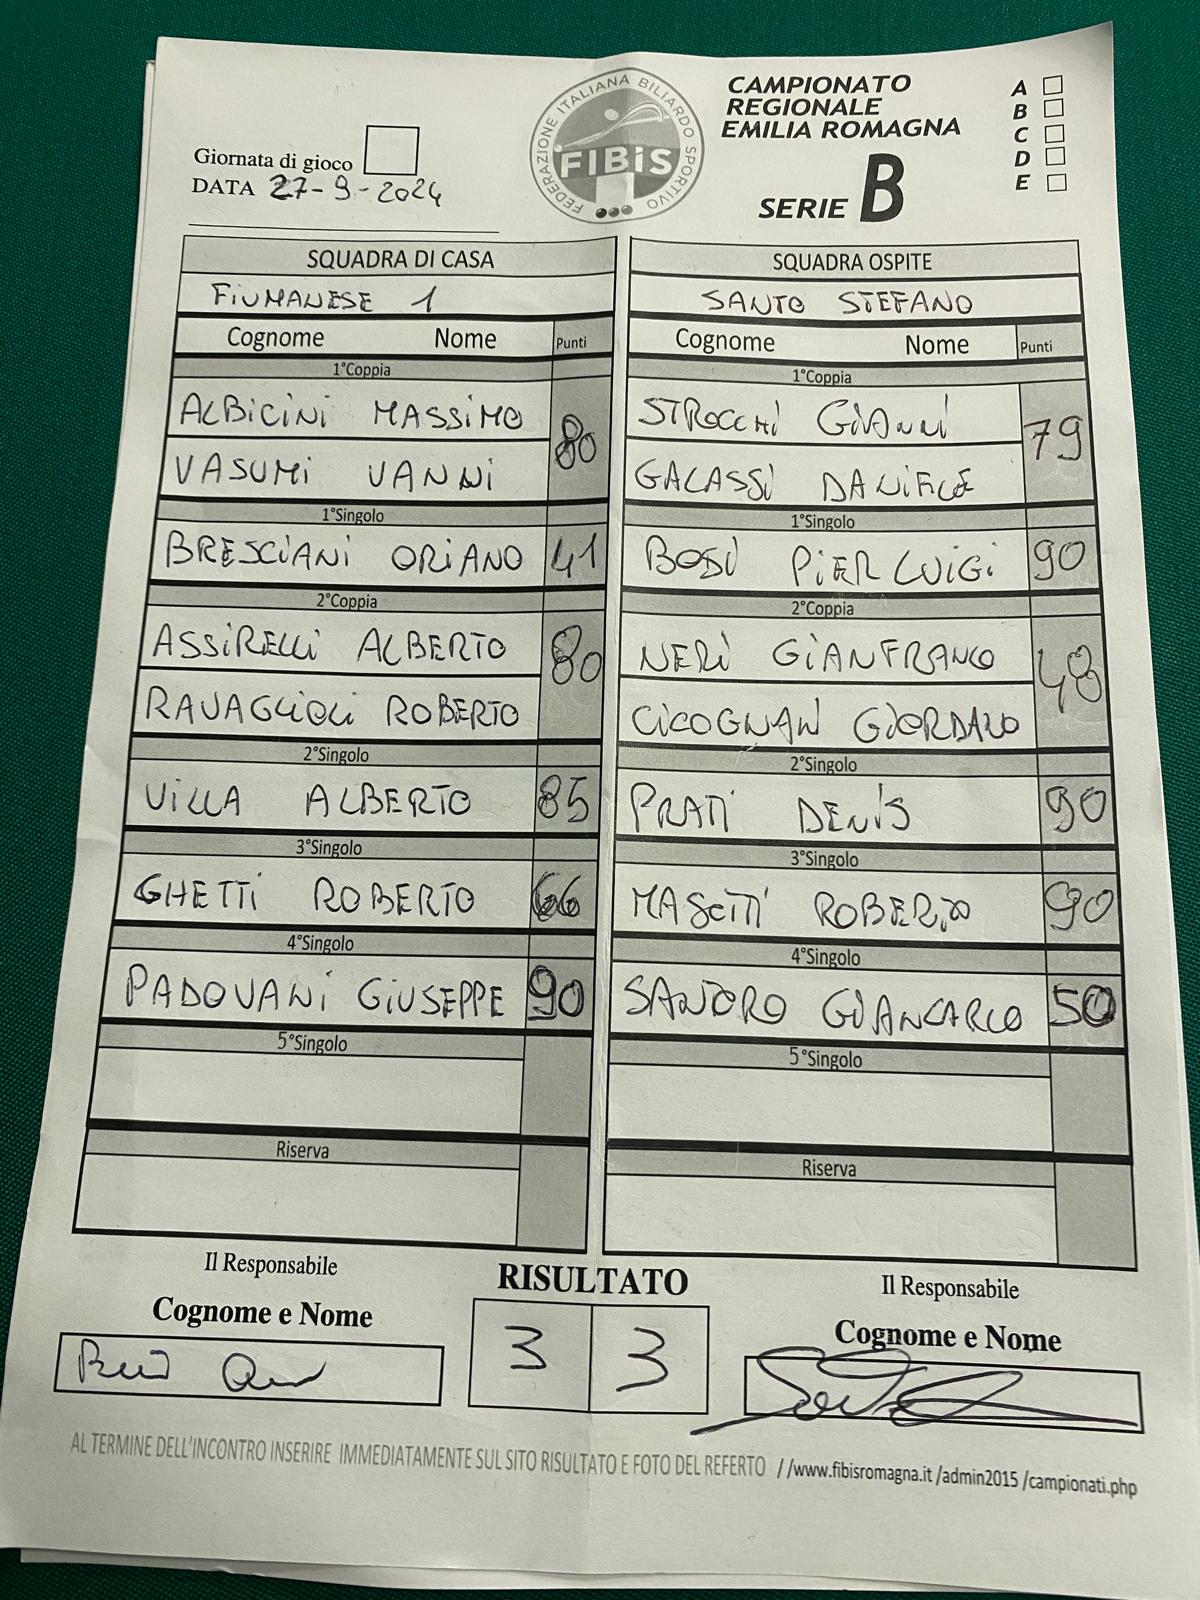 FEDERAZIONE ITALIANA BILIARDO SPORTIVO
FIBiS
CAMPIONATO
REGIONALE
EMILIA ROMAGNA
SERIE B
A
B
C
D
E
Giornata di gioco
DATA 27-9-2024
SQUADRA DI CASA
FIUMANESE 1
Cognome Nome Punti
1°Coppia
ALBICINI MASSIMO 80
VASUMI VANNI
1°Singolo
BRESCIANI ORIANO 41
2°Coppia
ASSIRELLI ALBERTO 80
RAVAGLIOLI ROBERTO
2°Singolo
VILLA ALBERTO 85
3°Singolo
GHETTI ROBERTO 66
4°Singolo
PADOVANI GIUSEPPE 90
5°Singolo
Riserva
SQUADRA OSPITE
SANTO STEFANO
Cognome Nome Punti
1°Coppia
STROCCHI GIANNI 79
GALASSI DANIELE
1°Singolo
BOSI PIER LUIGI 90
2°Coppia
NERI GIANFRANCO 48
CICOGNANI GIORDANO
2°Singolo
PRATI DENIS 90
3°Singolo
MASETTI ROBERTO 90
4°Singolo
SANTORO GIANCARLO 50
5°Singolo
Riserva
Il Responsabile
Cognome e Nome
RISULTATO
3 3
Il Responsabile
Cognome e Nome
AL TERMINE DELL'INCONTRO INSERIRE IMMEDIATAMENTE SUL SITO RISULTATO E FOTO DEL REFERTO //www.fibisromagna.it /admin2015 /campionati.php